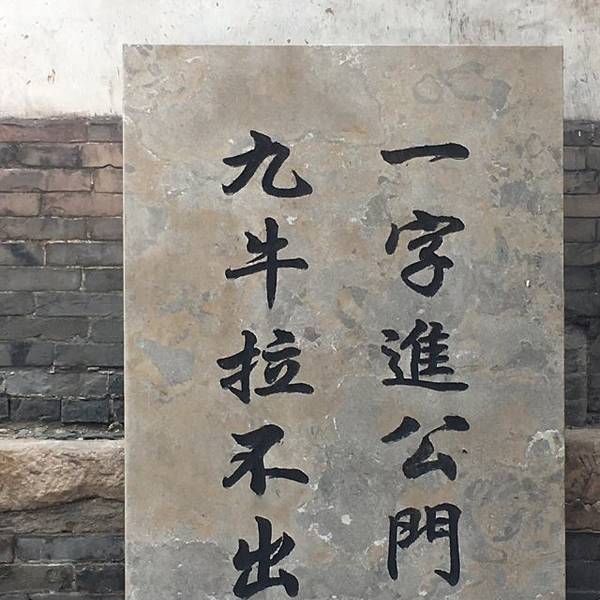 一字進公門
九牛拉不出